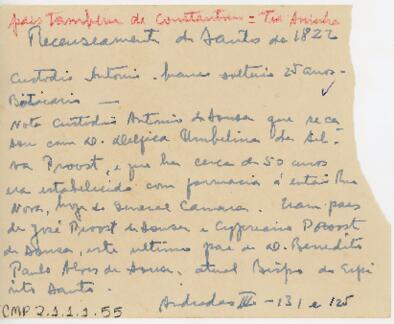 pais tambem de Constantino = Tia Aninha
Recenseamento de Santos de 1822
Custodio Antonio. branco solteiro 25 anos -
Boticario —
Nota Custodio Antonio de Sousa que se ca
sou com D. Delfica Umbelina da Sil-
va Proost, e que ha cerca de 50 anos
era estabelecido com farmacia á então Rua
Nova, hoje do General Camara. Eram paes
de José Proost de Sousa e Cypriano Proost
de Sousa, este ultimo pai de D. Benedito
Paulo Alves de Sousa, atual Bispo do Espi
rito Santo.
Andradas III - 131 e 125
CMP 2.1.1.1.55